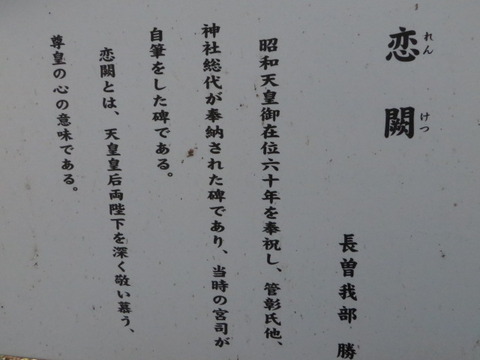 恋闕
れん
けつ
長曽我部 勝
昭和天皇御在位六十年を奉祝し、管彰氏他、
神社総代が奉納された碑であり、当時の宮司が
自筆をした碑である。
恋闕とは、天皇皇后両陛下を深く敬い慕う、
尊皇の心の意味である。